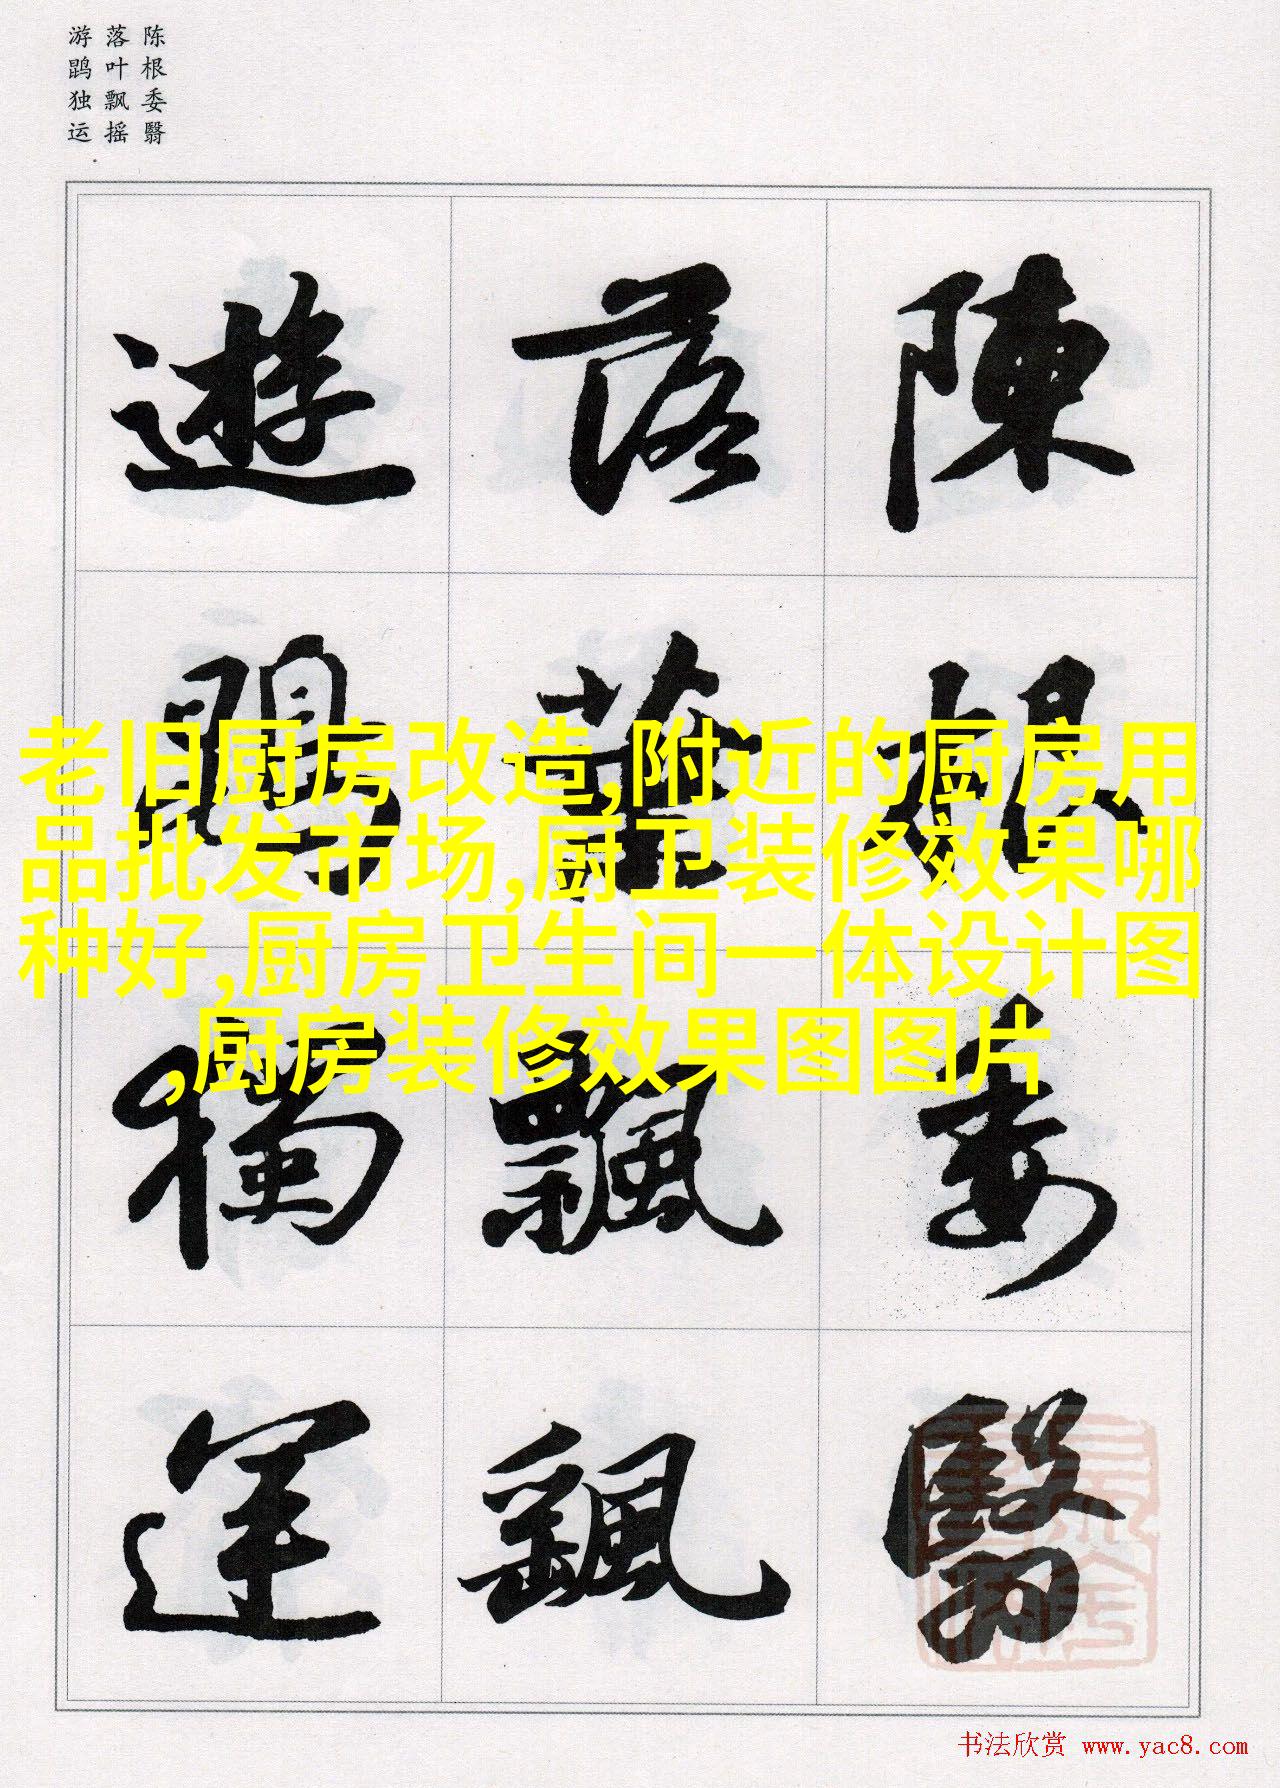 陈根委翳
落叶飘摇
游鹍独运
陳根委翳
落葉飄颻
遊鵾獨運
老旧厨房改造,附近的厨房用
品批发市场,厨卫装修效果哪
种好,厨房卫生间一体设计图
,厨房装修效果图图片
书法欣赏 www.yac8.com